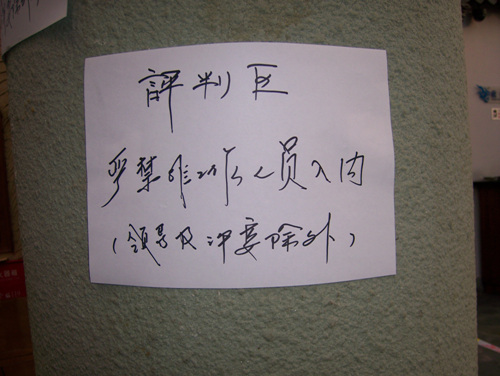 評判区
严禁非工作人员入内
(领导及评委除外)